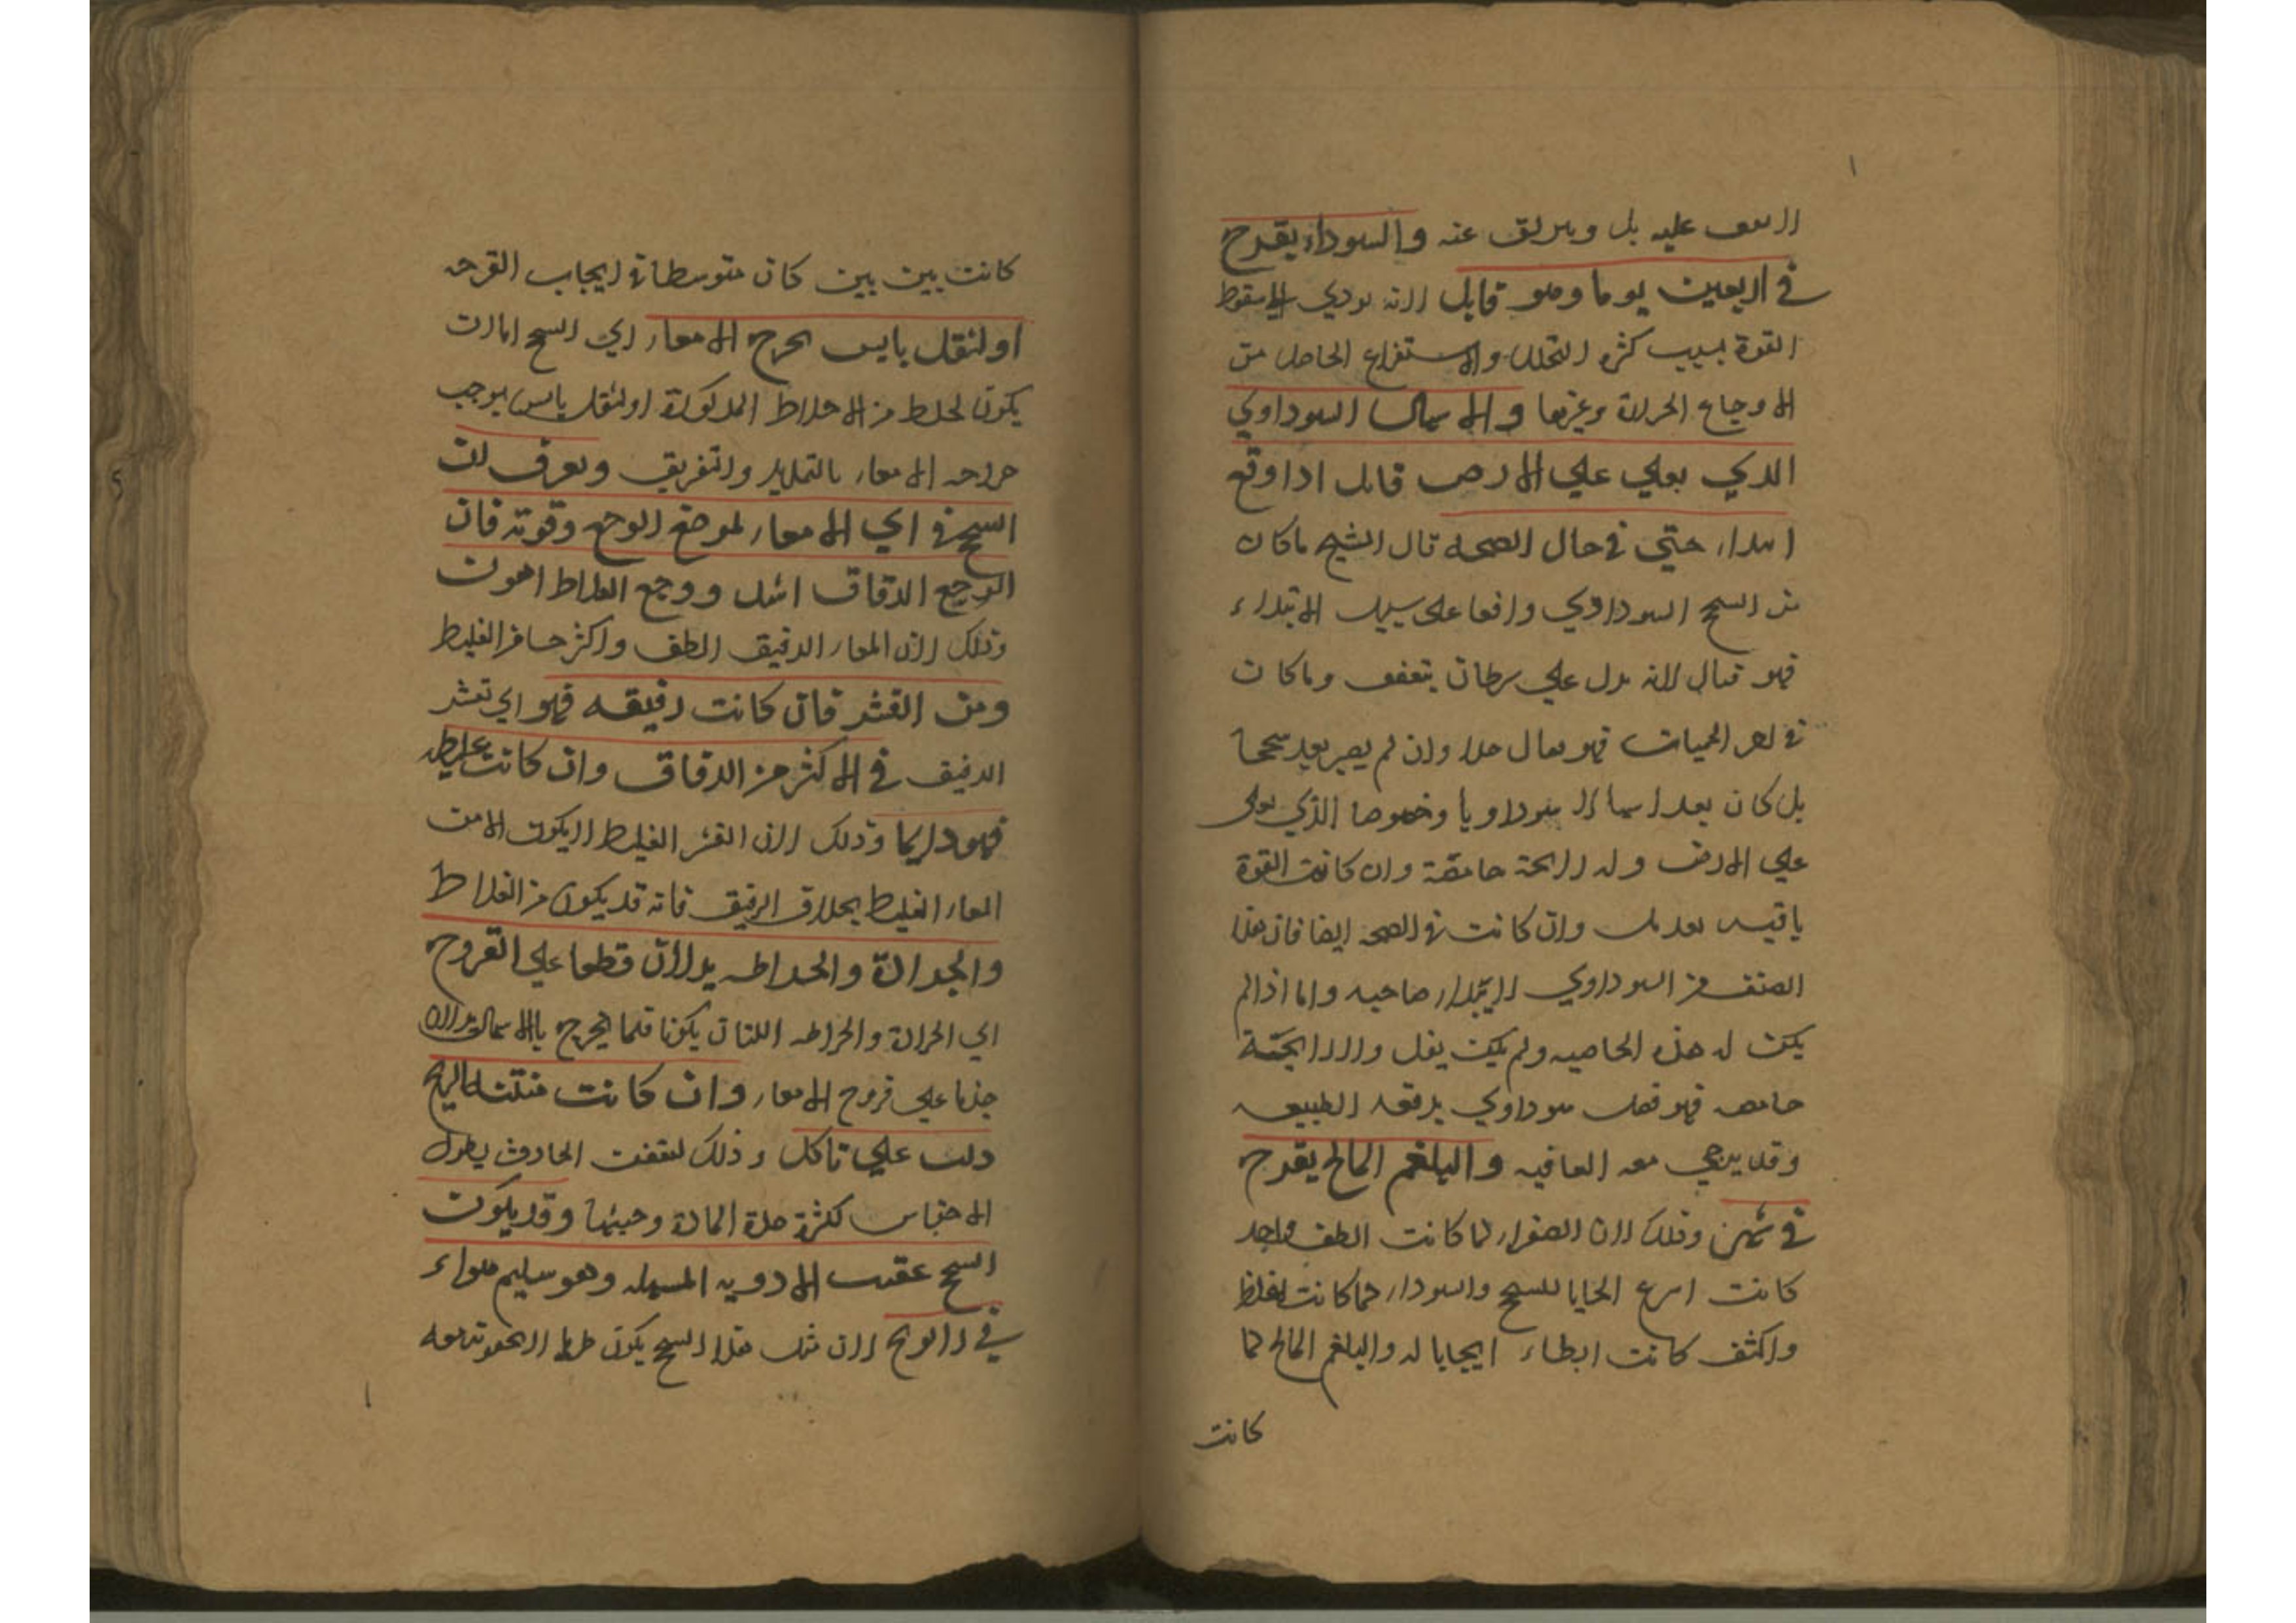 عليه بل عنه والسوداء يقرح
في اربعين يوما وهو قاتل لانه يودي الي سقوط
القوة بسبب كثرة التحلل والاستفراغ الحاصل من
الاوجاع وغيرها والاسهال السوداوي
الذي يغلي علي الارض قاتل اذا وقع
ابتداء حتي في حال الصحة قال الشيخ ما كان
من السحج السوداوي واقعا علي سبيل الابتداء
فهو قتال لانه يدل علي سرطان يتعفن وما كان
في اخر الحميات فهو قتال جدا وان لم يصر بعد سحجا
بل كان بعد اسهالا سوداويا وخصوصا الذي يغلي
علي الارض وله رايحة حامضة وان كانت القوة
باقيه بعد بل وان كانت في الصحه ايضا فان هذا
الصنف من السوداوي لا يبرا صاحبه واما اذا لم
يكن له هذه الخاصيه ولم يكن يغل ولا رايحته
حامضه فهو فضل سوداوي يدفعه الطبيعه
وقد يرجي معه العافيه والبلغم المالح يقرح
في شهر وذلك لان الصفراء لما كانت الطف واحد
كانت اسرع ايجابا للسحج والسوداء لما كانت اغلظ
واكثف كانت ابطاء ايجابا له والبلغم المالح لما
كانت
كانت بين بين كان متوسطا في ايجاب القرحه
او لثقل يابس يجرح الامعاء اي السحج اما ان
يكون لخلط من الاخلاط المذكورة او لثقل يابس يوجب
جراحه الامعاء بالتمديد والتفريق ويعرف ان
السحج في اي الامعاء لموضع الوجع وقوته فان
الوجع الدقاق اشد ووجع الغلاظ اهون
وذلك لان المعاء الدقيق الطف واكثر حسا من الغليظ
ومن القشر فان كانت رقيقه فهو اي قشر
الدقيق في الاكثر من الدقاق وان كانت غليظه
فهو دايما وذلك لان القشر الغليظ لا يكون الا من
المعاء الغليظ بخلاف الرقيق فانه قد يكون من الغلاظ
والجرادة والخراطه يدلان قطعا علي القروح
اي الجرادة والخراطه اللتان يكونا فلما يخرج بالاسهال يدلان
جزما علي قروح الامعاء وان كانت منتنه الريح
دلت علي تاكل وذلك لتعفن الحادث بطول
الاحتباس لكثرة حدة المادة وخبثها وقد يكون
السحج عقيب الادويه المسهله وهو سليم سواء
في لان مثل هذا السحج يكون طريا لا عفونة معه